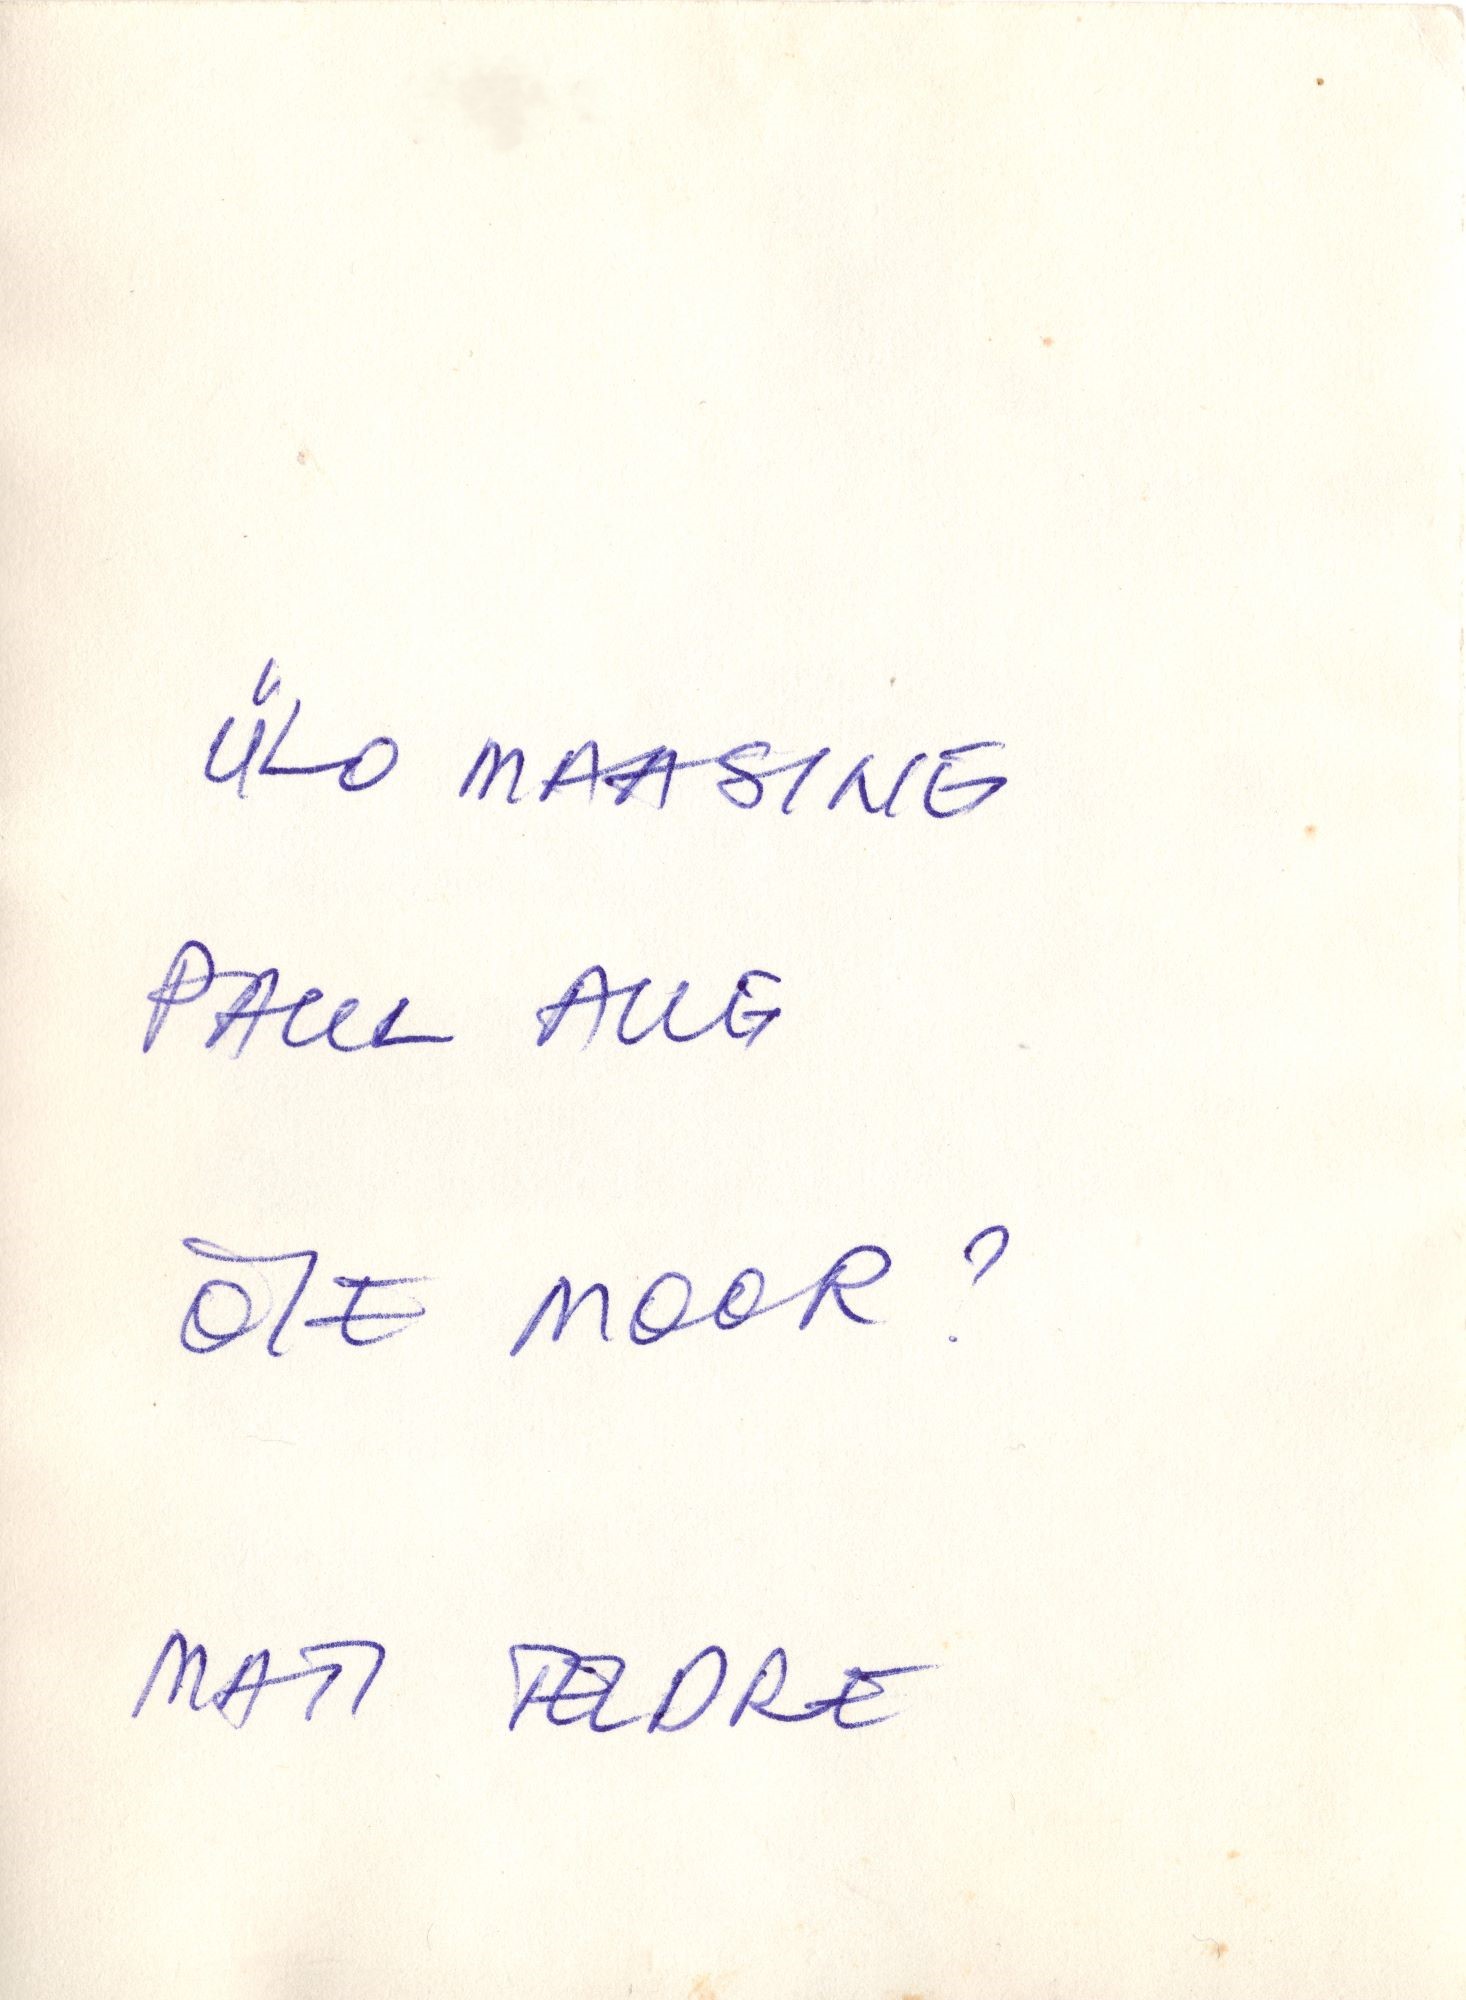 ÜLO MAASING
PAUL AUG
ÕIE MOOR?
MATI